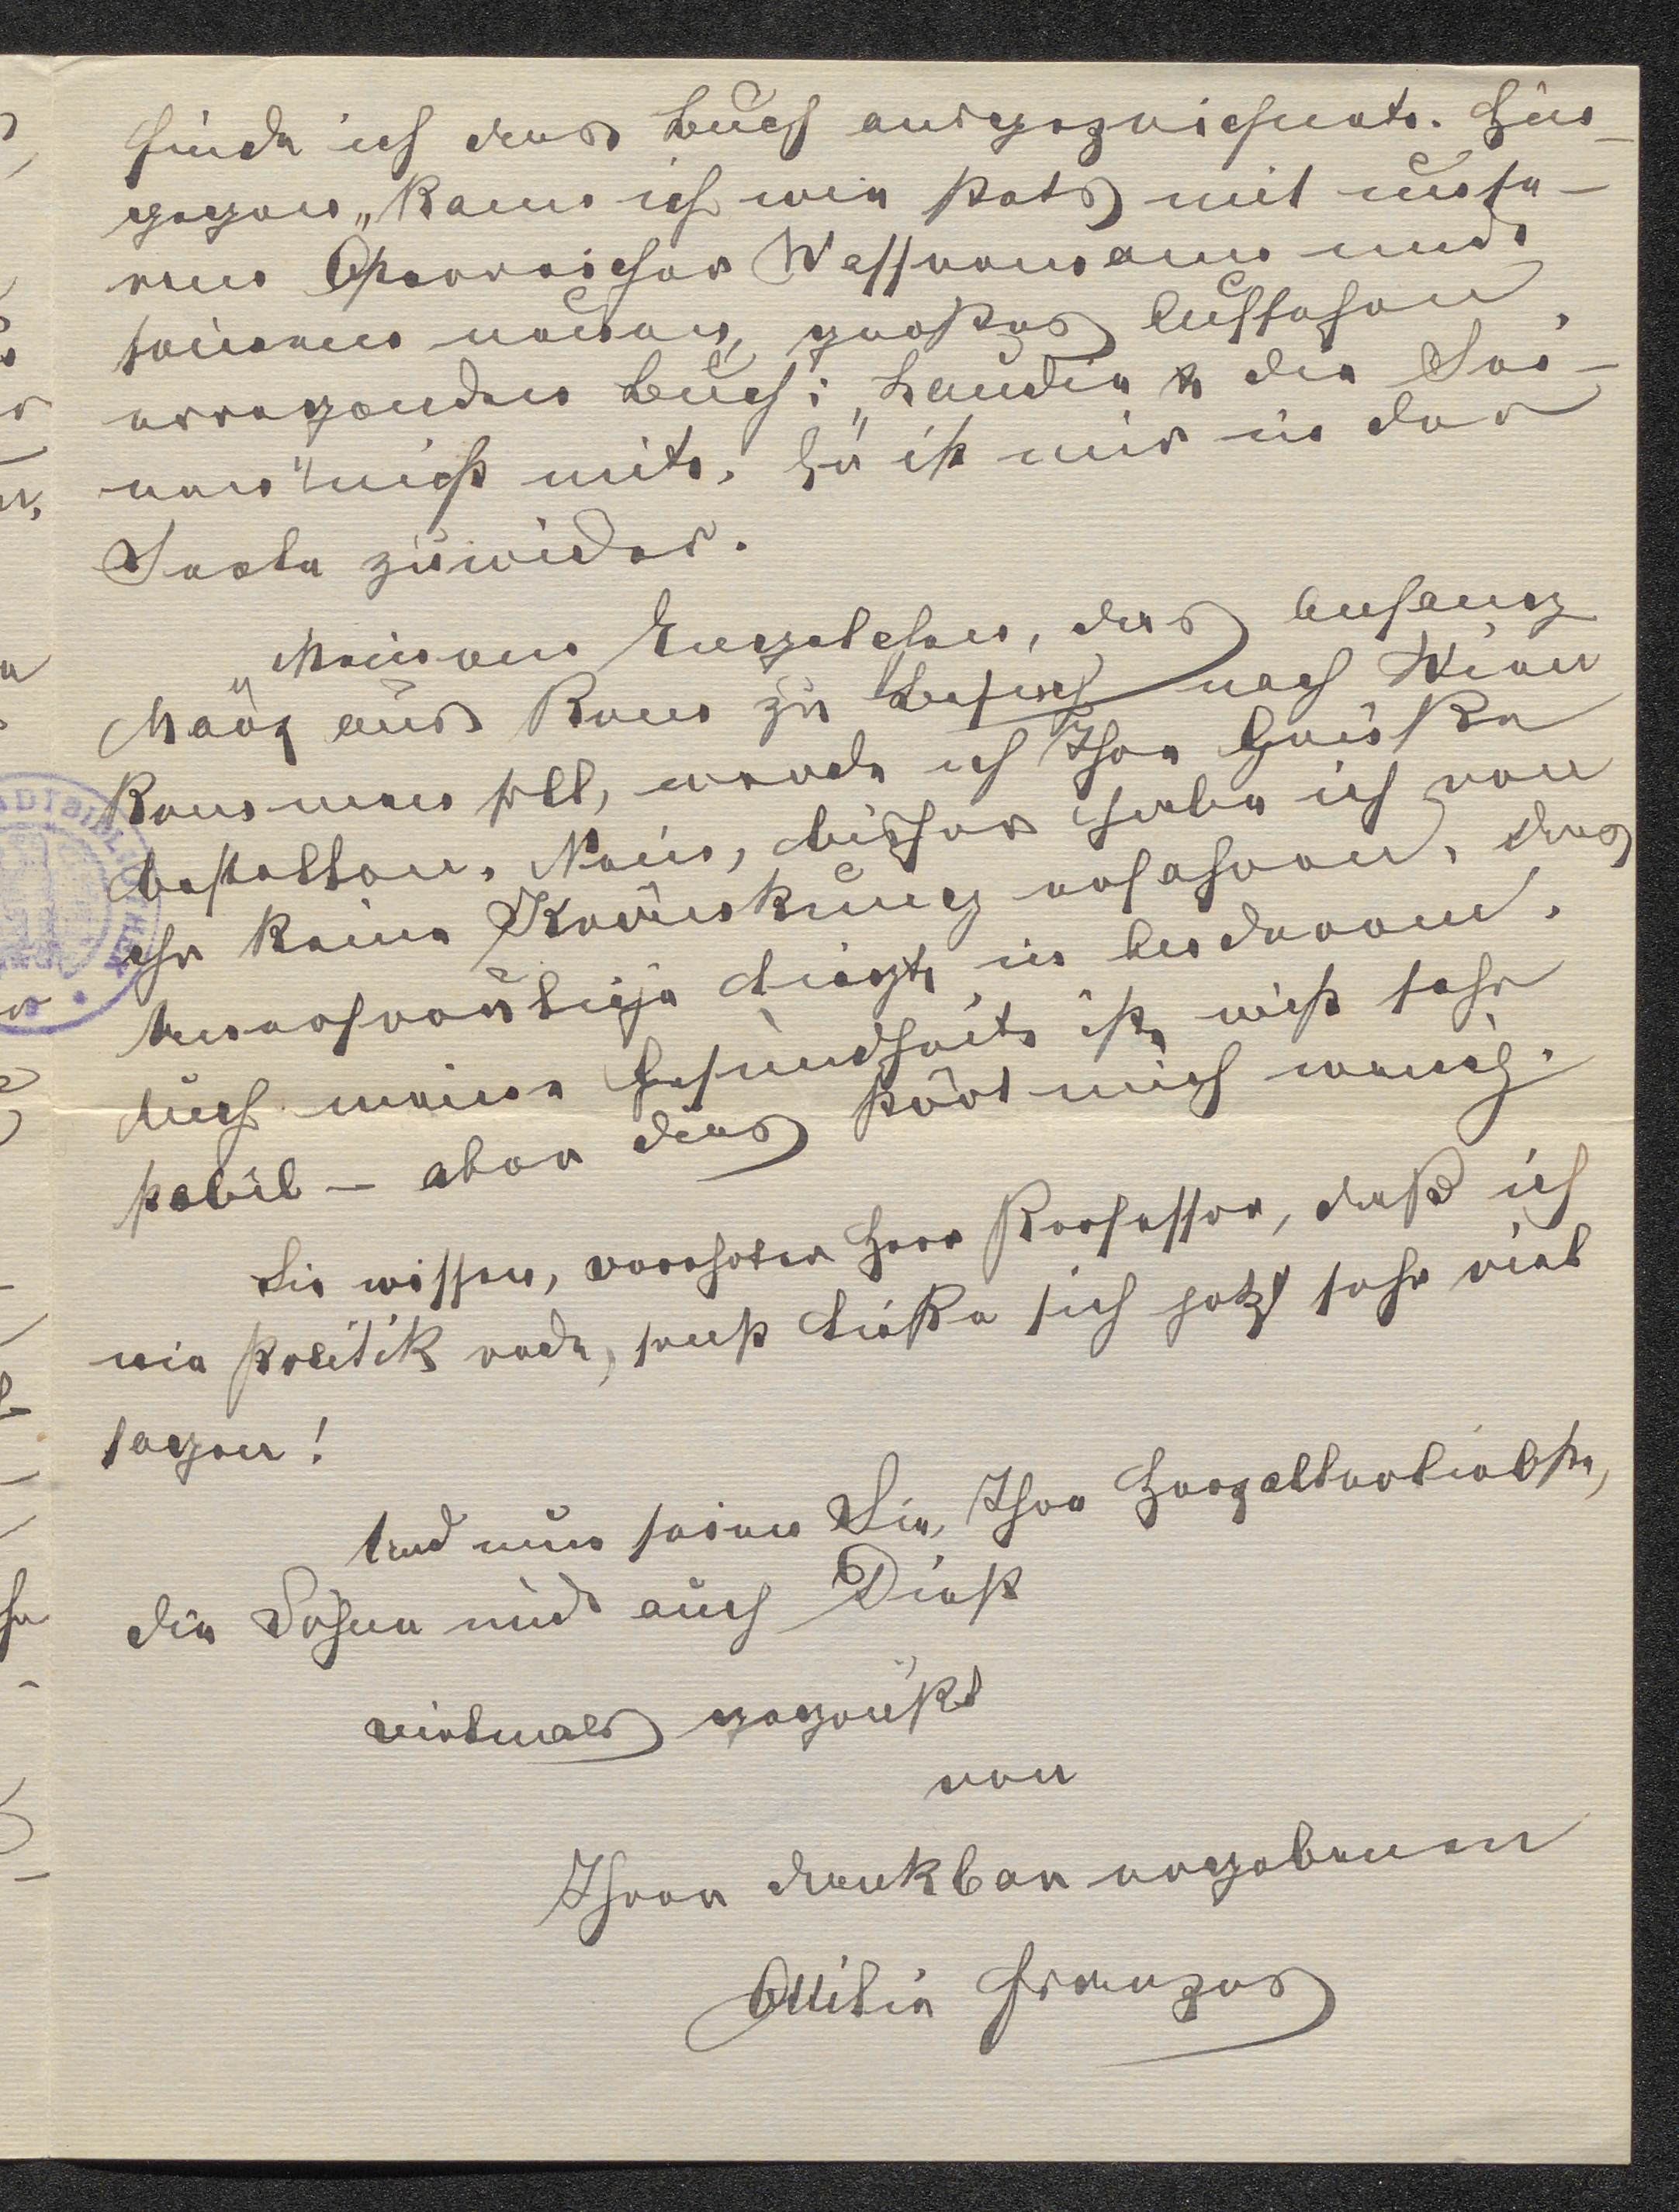 finde ich das Buch ausgezeichnet. Hin-
gegen kann ich wie stets mit unse-
rem Österreicher Wassermann und
seinem neuen, großes Aufsehen
erregenden Buch: „Laudin & die Sei-
nen" nicht mit. Er ist mir in der
Seele zuwider.
Meinem Engelchen, das Anfang
März aus Rom zu Besuch nach Wien
kommen soll, werde ich Ihre Grüße
bestellen. Nein, bisher habe ich von
ihr keine Kränkung erfahren, das
Unerfreuliche liegt in Anderem.
Auch meine Gesundheit ist nicht sehr
stabil – aber dies stört mich wenig.
Sie wissen, verehrter Herr Professor, daß ich
nie Politik rede, sonst ließe sich jetzt sehr viel
sagen!
Und nun seien Sie, Ihre Herzallerliebste,
die Söhne und auch Dieß
vielmals gegrüßt
von
Ihrer dankbar ergebenen
Ottilie Franzos